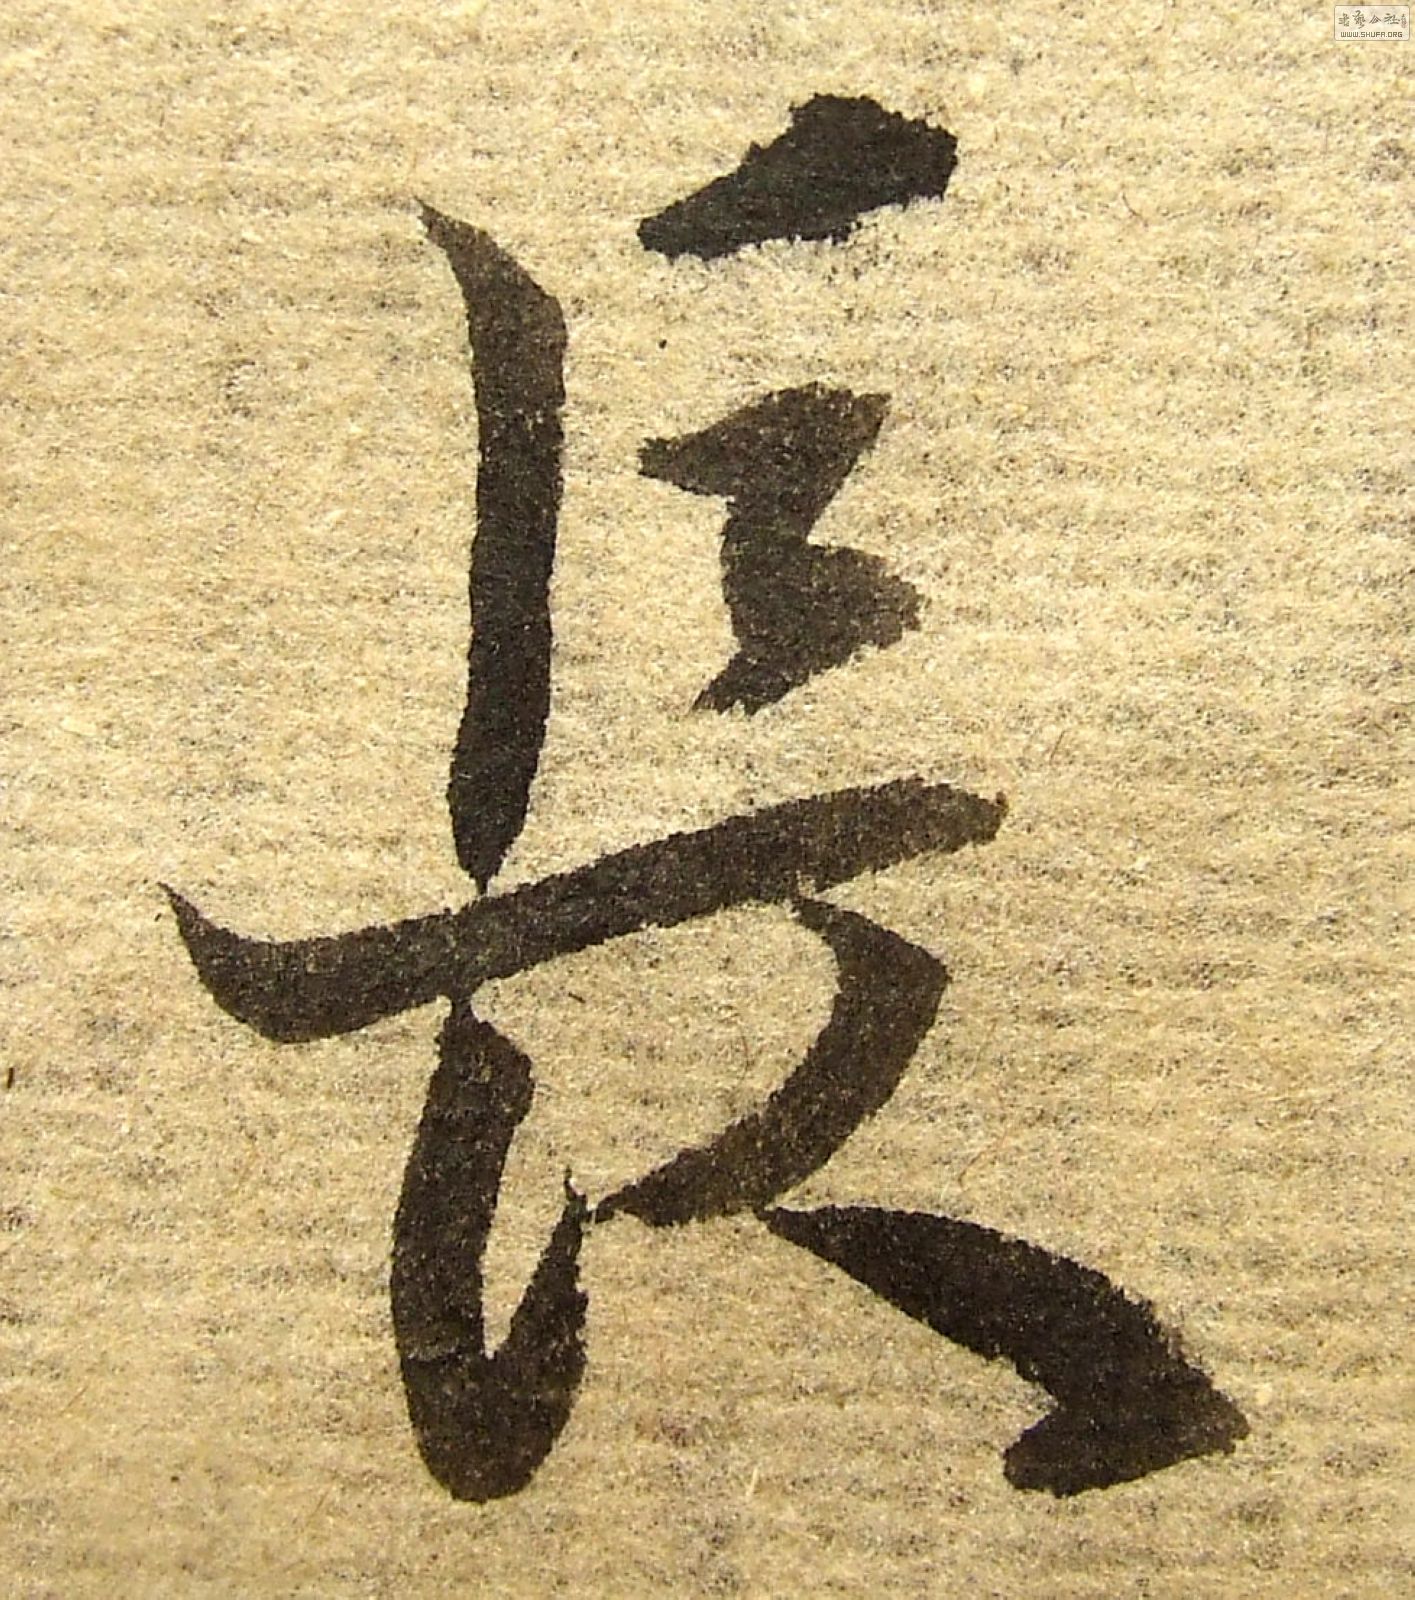 長
书艺公社
WWW.SHUFA.ORG